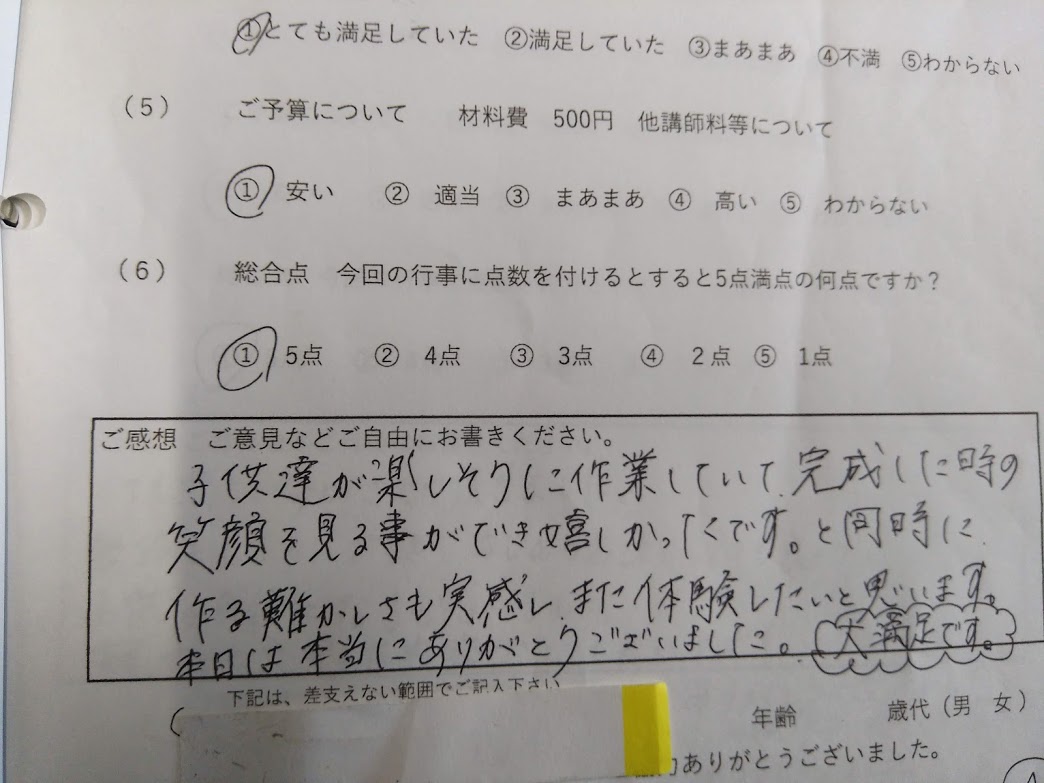 ①とても満足していた ②満足していた ③まあまあ ④不満 ⑤わからない
（5） ご予算について 材料費 500円 他講師料等について
① 安い ② 適当 ③ まあまあ ④ 高い ⑤ わからない
（6） 総合点 今回の行事に点数を付けるとすると5点満点の何点ですか？
① 5点 ② 4点 ③ 3点 ④ 2点 ⑤ 1点
ご感想 ご意見などご自由にお書きください。
子供達が楽しそうに作業していて、完成した時の
笑顔を見る事ができ嬉しかったです。と同時に、
作る難かしさも実感し、また体験したいと思います。
本日は本当にありがとうございました。大満足です。
下記は、差支えない範囲でご記入下さい
(
年齢 歳代（男 女）
ありがとうございました。